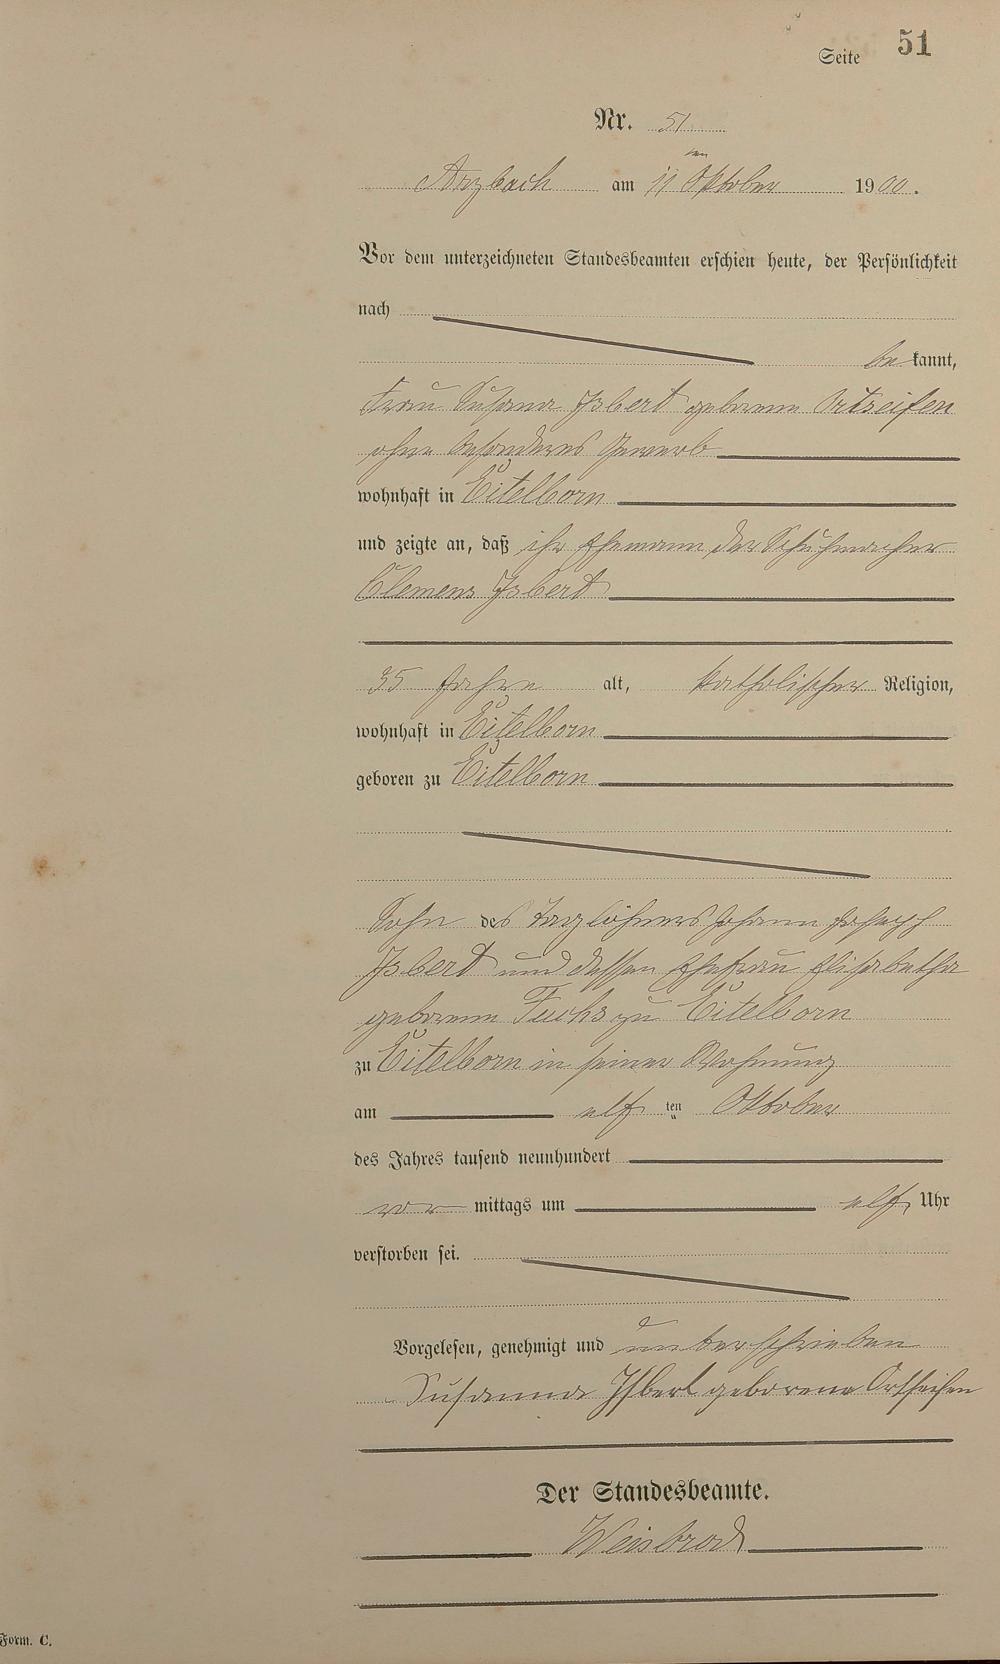 Seite 51
Nr. 51
Arzbach am 11ten Oktober 1900.
Vor dem unterzeichneten Standesbeamten erschien heute, der Persönlichkeit
nach
be kannt,
Frau Susana Isbert geborene Ortseifen
ohne besonderes Gewerb
wohnhaft in Eitelborn
und zeigte an, daß ihr Ehemann der Schuhmacher
Clemens Isbert
35 Jahre alt, katholischer Religion,
wohnhaft in Eitelborn
geboren zu Eitelborn
Sohn des Taglöhners Johann Joseph
Isbert und dessen Ehefrau Elisabetha
geborene Fuchs zu Eitelborn
zu Eitelborn in seiner Wohnung
am elf ten Oktober
des Jahres tausend neunhundert
vor mittags um elf Uhr
verstorben sei.
Vorgelesen, genehmigt und unterschrieben
Susanna Isbert geborene Ortseifen
Der Standesbeamte.
Weisbrod
Form. C.